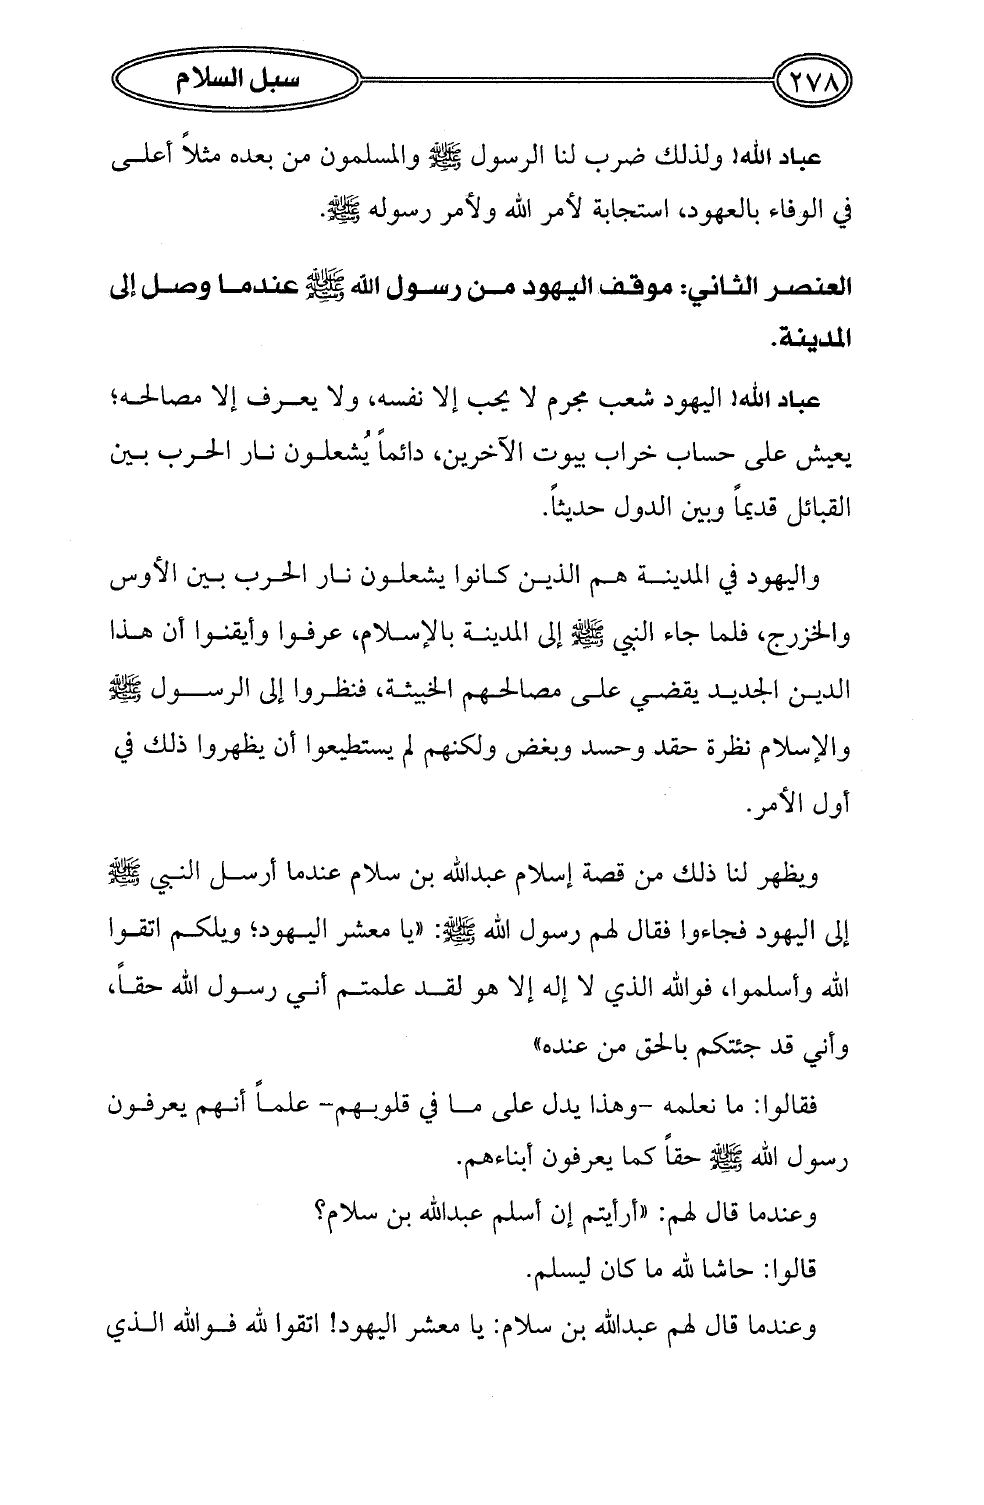 ٢٧٨
سبل السلام
عباد الله! ولذلك ضرب لنا الرسول ﷺ والمسلمون من بعده مثلاً أعلى
في الوفاء بالعهود، استجابة لأمر الله ولأمر رسوله ﷺ.
العنصر الثاني: موقف اليهود من رسول الله ﷺ عندما وصل إلى
المدينة.
عباد الله! اليهود شعب مجرم لا يحب إلا نفسه، ولا يعرف إلا مصالحه؛
يعيش على حساب خراب بيوت الآخرين، دائماً يُشعلون نار الحرب بين
القبائل قديماً وبين الدول حديثاً.
واليهود في المدينة هم الذين كانوا يشعلون نار الحرب بين الأوس
والخزرج، فلما جاء النبي ﷺ إلى المدينة بالإسلام، عرفوا وأيقنوا أن هذا
الدين الجديد يقضي على مصالحهم الخبيثة، فنظروا إلى الرسول ﷺ
والإسلام نظرة حقد وحسد وبغض ولكنهم لم يستطيعوا أن يظهروا ذلك في
أول الأمر.
ويظهر لنا ذلك من قصة إسلام عبدالله بن سلام عندما أرسل النبي ﷺ
إلى اليهود فجاءوا فقال لهم رسول الله ﷺ: «يا معشر اليهود؛ ويلكم اتقوا
الله وأسلموا، فوالله الذي لا إله إلا هو لقد علمتم أني رسول الله حقاً،
وأني قد جئتكم بالحق من عنده»
فقالوا: ما نعلمه -وهذا يدل على ما في قلوبهم- علماً أنهم يعرفون
رسول الله ﷺ حقاً كما يعرفون أبناءهم.
وعندما قال لهم: «أرأيتم إن أسلم عبدالله بن سلام؟
قالوا: حاشا لله ما كان ليسلم.
وعندما قال لهم عبدالله بن سلام: يا معشر اليهود! اتقوا لله فوالله الذي